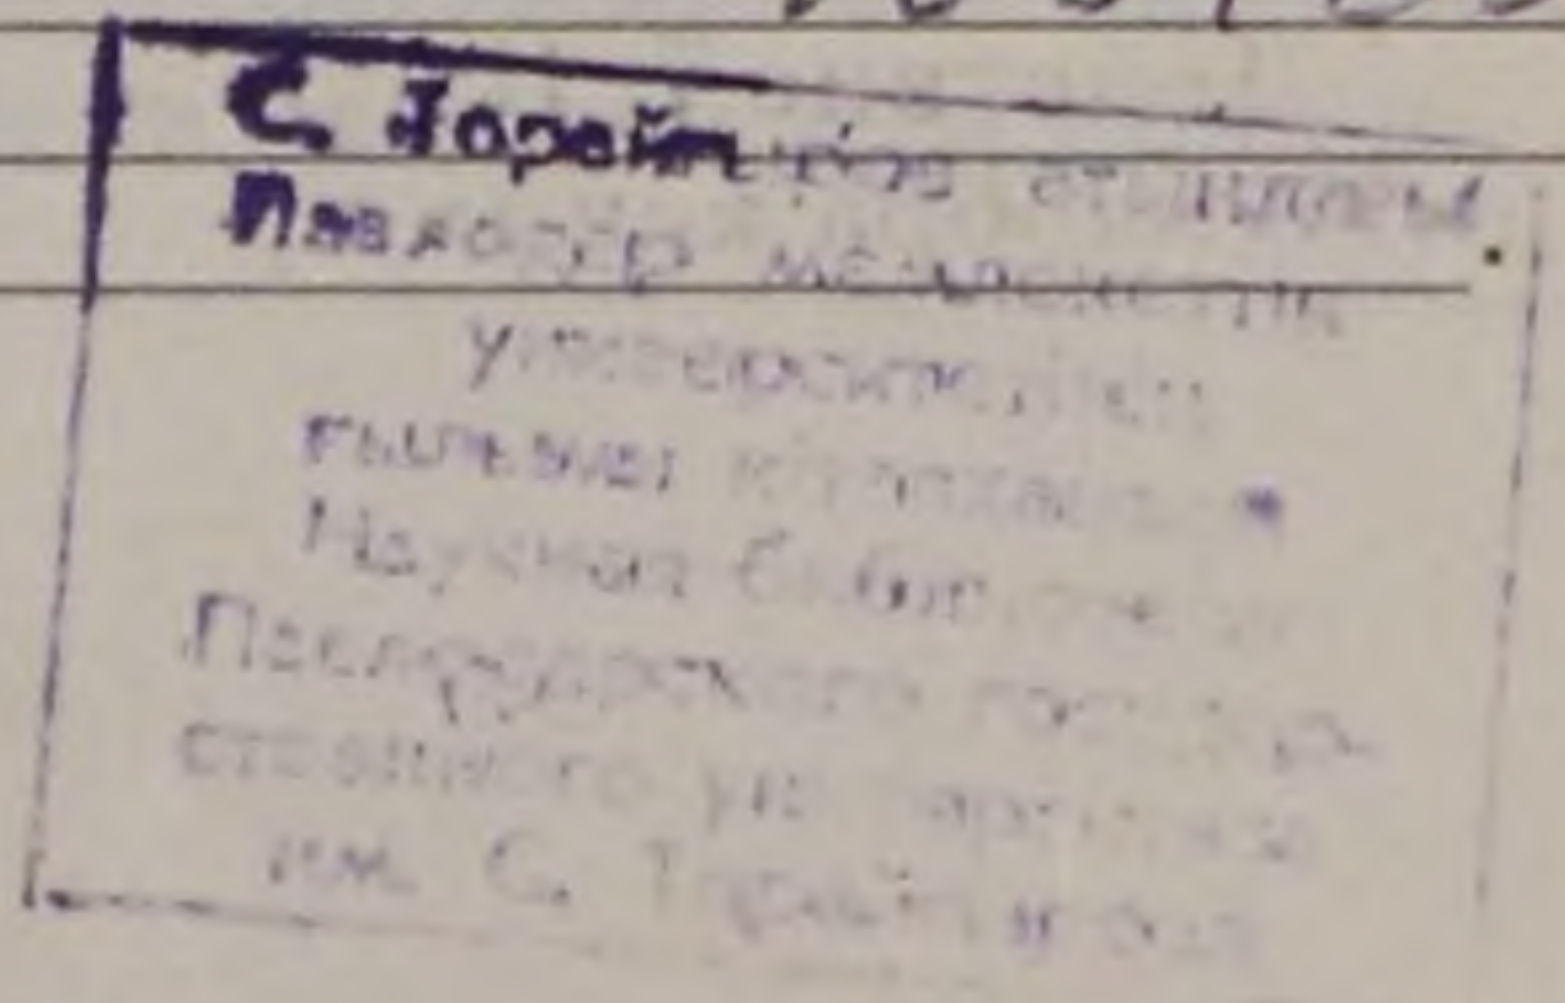 С. Торайғыров атындағы
Павлодар мемлекеттік
университетінің
ғылыми кітапханасы
Научная библиотека
Павлодарского государ-
ственного университета
им. С. Торайгырова